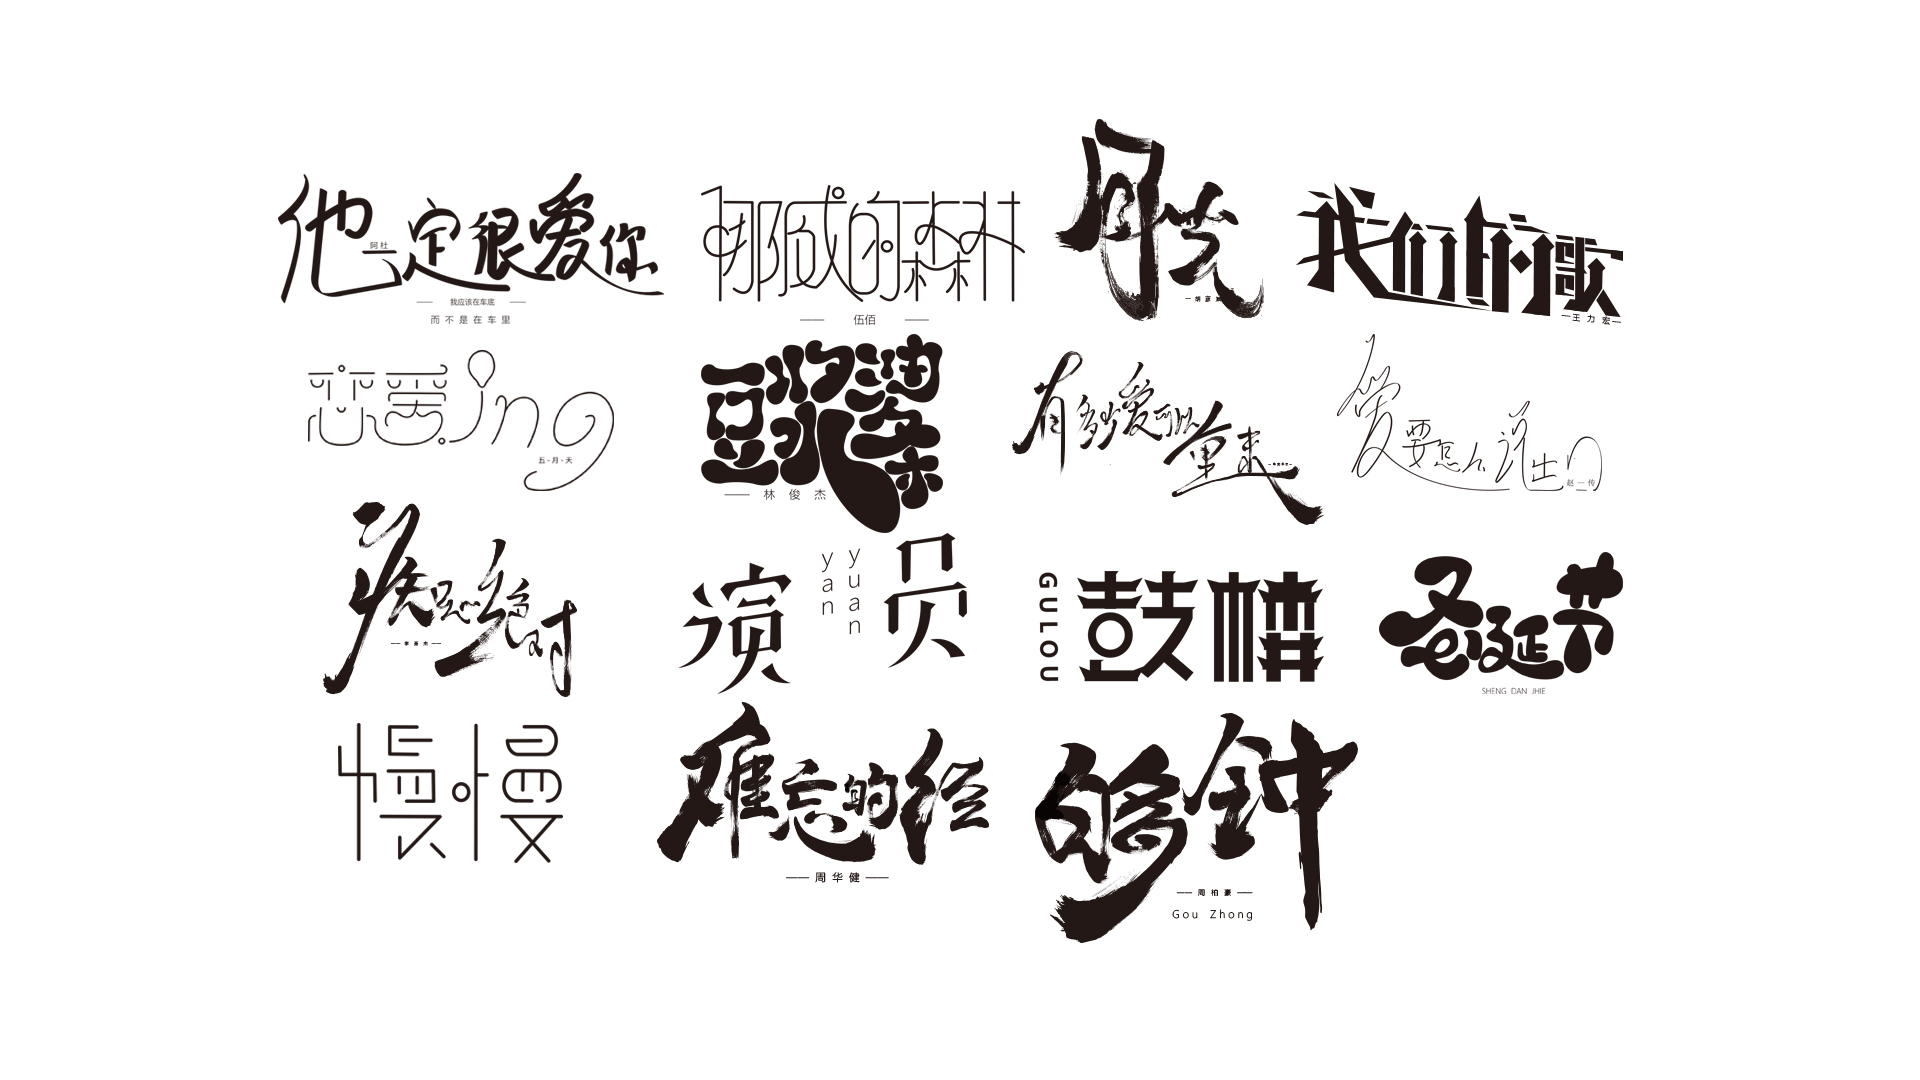 他一定很爱你
阿杜
我应该在车底
而不是在车里
挪威的森林
伍佰
月光
胡彦斌
我们的歌
王力宏
恋爱ing
五-月-天
豆浆油条
林俊杰
有多少爱可以重来
爱要怎么说出口
赵一传
痴心绝对
李圣杰
演员
yan
yuan
鼓楼
GULOU
圣诞节
SHENG DAN JHIE
慢慢
难忘的经
周华健
够钟
周柏豪
Gou Zhong